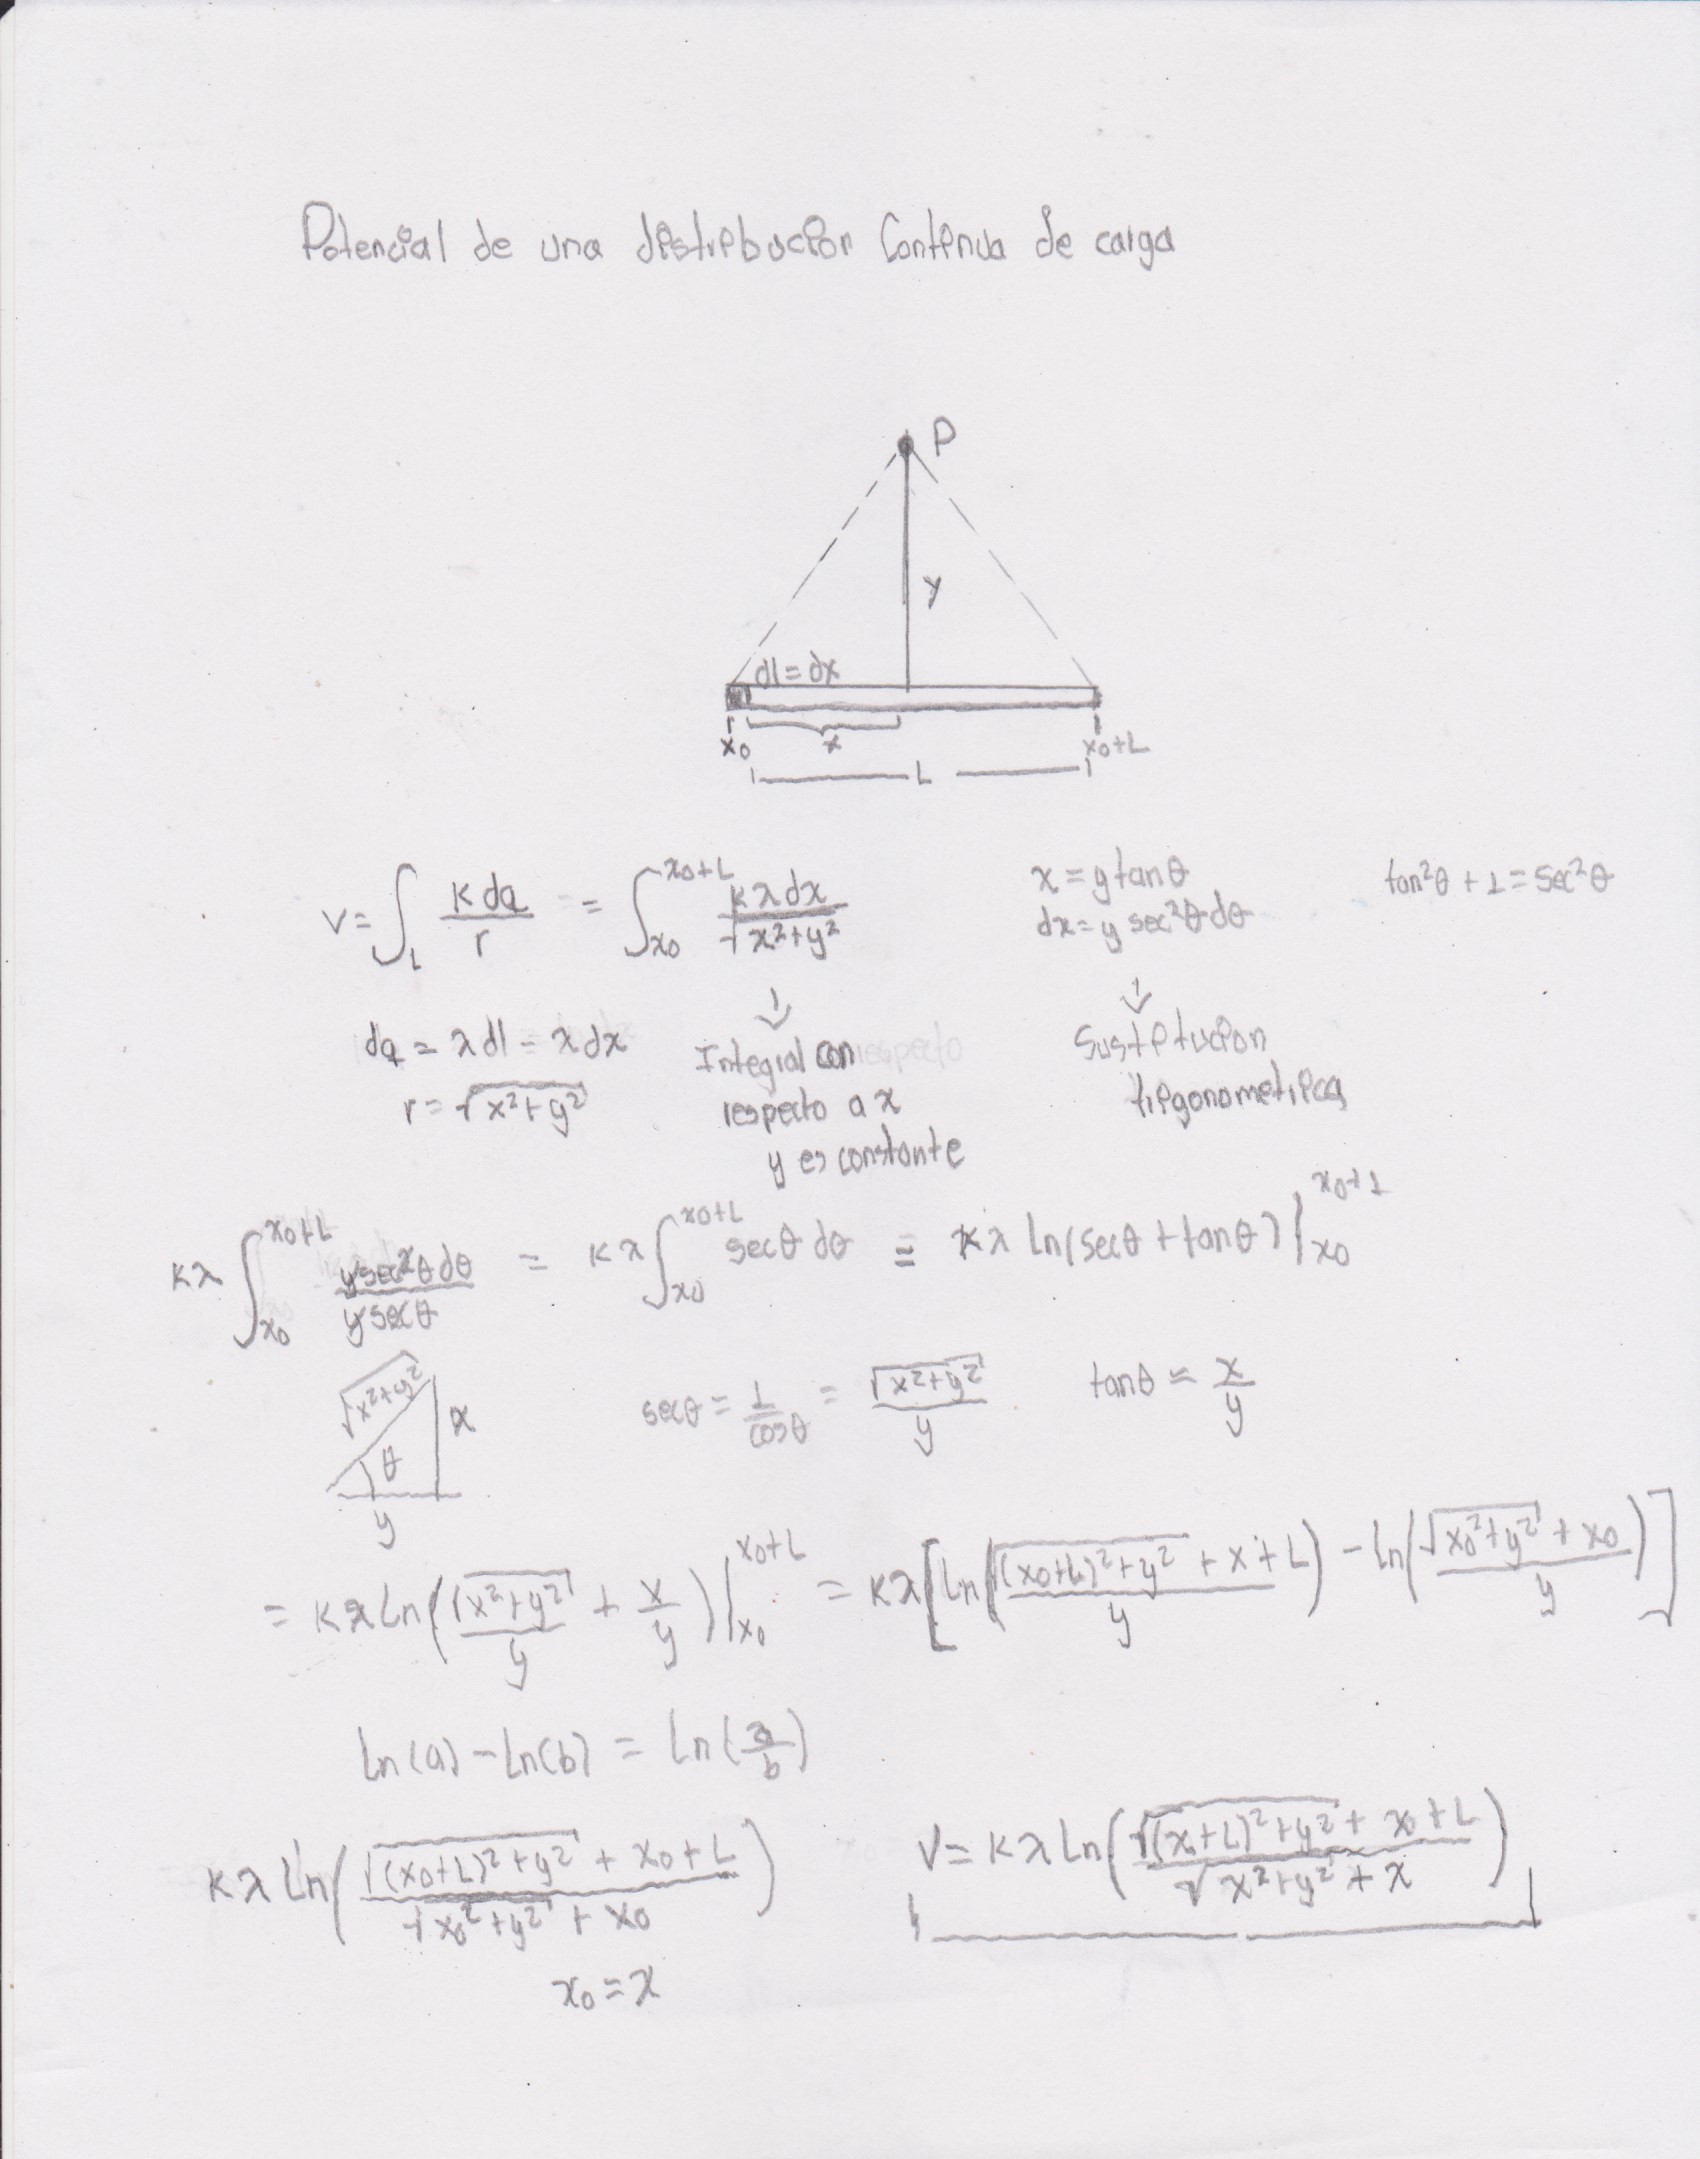 Potencial de una distribucion Continua de carga
P
y
dl = dx
x₀ x x₀+L
L
V = ∫_L K dq / r = ∫_{x₀}^{x₀+L} Kλdx / √(x²+y²) x = y tanθ tan²θ + 1 = sec²θ
dx = y sec²θ dθ
↓ ↓
dq = λ dl = λ dx Integral con Sustitucion
r = √(x²+y²) respecto a x trigonometrica
y es constante
Kλ ∫_{x₀}^{x₀+L} y sec²θ dθ / y secθ = Kλ ∫_{x₀}^{x₀+L} secθ dθ = Kλ ln(secθ + tanθ) |_{x₀}^{x₀+L}
√(x²+y²) x θ y secθ = 1/cosθ = √(x²+y²) / y tanθ = x/y
= Kλ ln(√(x²+y²)/y + x/y) |_{x₀}^{x₀+L} = Kλ[ln((√((x₀+L)²+y²) + x + L)/y) - ln((√(x₀²+y²) + x₀)/y)]
ln(a) - ln(b) = ln(a/b)
Kλ ln((√((x₀+L)²+y²) + x₀+L) / (√(x₀²+y²) + x₀)) V = Kλ ln((√((x+L)²+y²) + x+L) / (√(x²+y²) + x))
x₀ = x